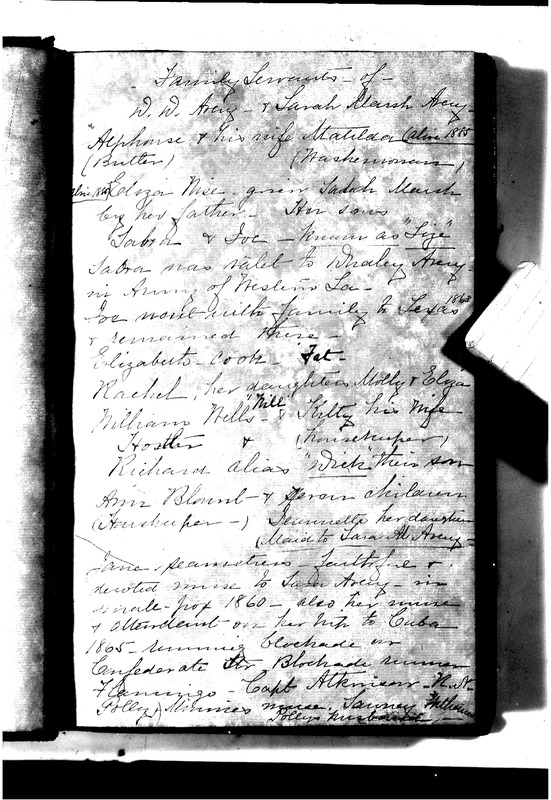 Family Servants - of -
D. D. Avery - & Sarah Marsh Avery -
"Alphonse & his wife Matilda (alive 1865
(Butler) (Washerwoman)
alive 1865 Eliza Wise - given Sadah Marsh
by her father - Her sons
Sabra & Joe - known as "Lige"
Sabra was valet to Dudley Avery -
in Army of Western La -
Joe went with family to Texas 1863
& remained there -
Elizabeth - Cook - Fat
Rachel, her daughters Molly & Eliza
William Wells - "Will" & Kitty his wife
Hostler & (housekeeper)
Richard alias "Dick" their son
Ann Blount - & seven children
(Housekeeper -) Jeannette her daughter
(Maid to Sara M. Avery -
Jane seamstress faithful &
devoted nurse to Sara Avery - in
small-pox 1860 - also her nurse
& attendant on her trip to Cuba
1865 - running blockade on
Confederate Str. Blockade runner
Flamingo - Capt Atkinson - R. N.
Polly, Minnie's nurse. William
Polly's husband